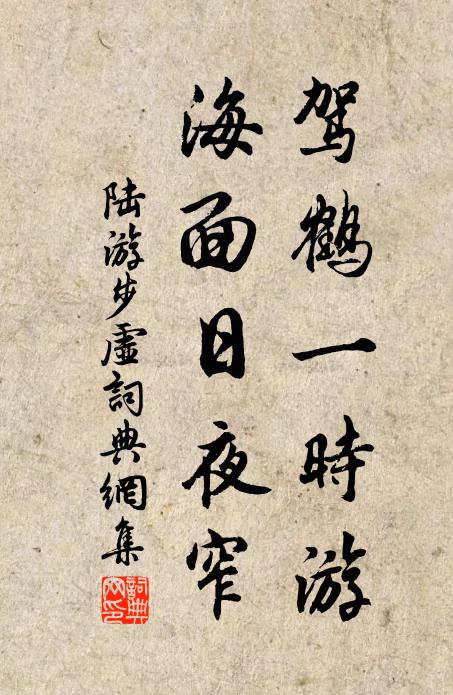 駕鶴一時游
海面日夜窄
陸游步虛詞典網集
詞典網印